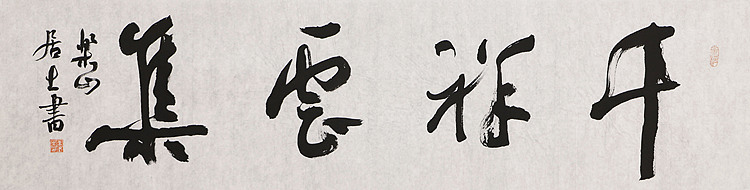 千祥雲集
樂山
居士書